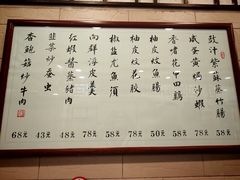 豉汁紫蘇蒸竹腸 58元
咸蛋黃焗沙蝦 78元
香嗜花甲田鷄 58元
柚皮炆魚腸 50元
柚皮炆花膠 78元
椒鹽九魚須 58元
鮮浮皮 78元
紅蝦醬蒸豬肉 48元
韭菜炒蚕虫 43元
香鮑菇炒牛肉 68元